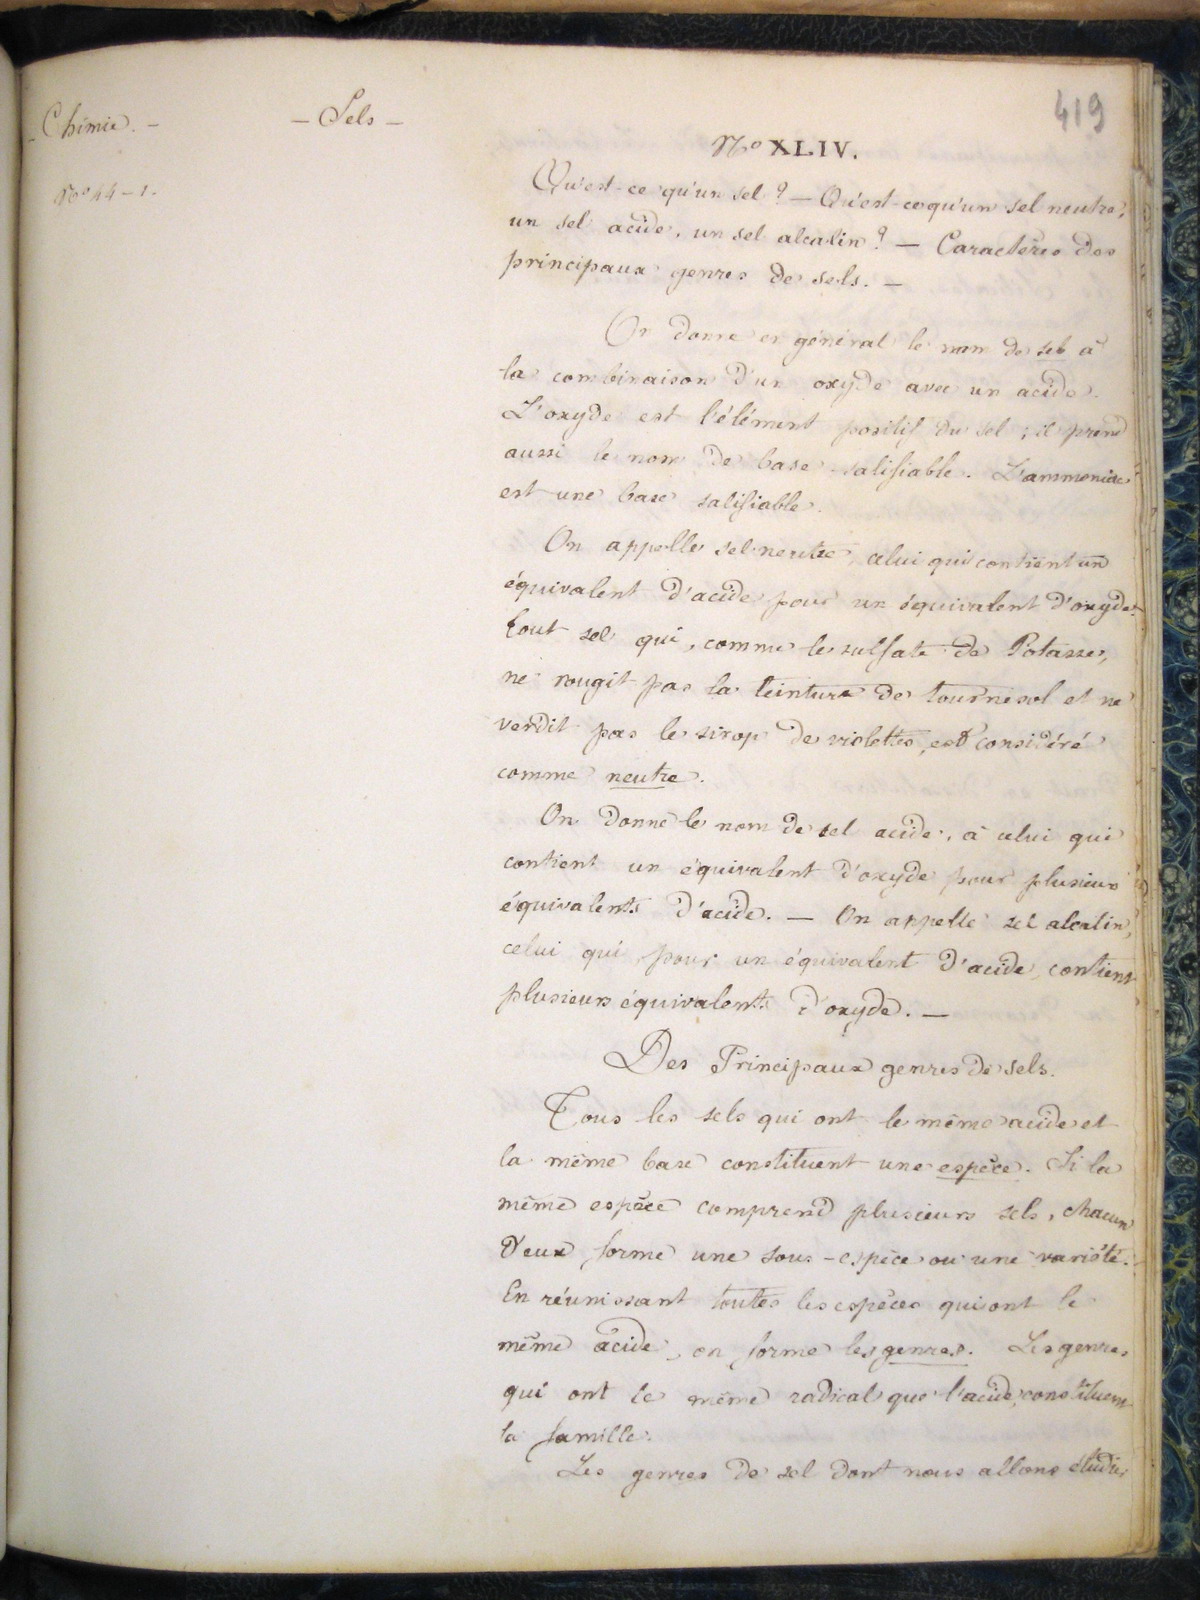 _ Chimie. _
_ Sels _
419
No 44 - 1.
No XLIV.
Qu'est-ce qu'un sel ? — Qu'est-ce qu'un sel neutre,
un sel acide, un sel alcalin ? — Caractères des
principaux genres de sels. —
On donne en général le nom de sels à
la combinaison d'un oxyde avec un acide.
L'oxyde est l'élément positif du sel ; il prend
aussi le nom de base salifiable. L'ammoniac
est une base salifiable.
On appelle sel neutre celui qui contient un
équivalent d'acide pour un équivalent d'oxyde.
Tout sel qui, comme le sulfate de Potasse,
ne rougit pas la teinture de tournesol et ne
verdit pas le sirop de violettes, est considéré
comme neutre.
On donne le nom de sel acide, à celui qui
contient un équivalent d'oxyde pour plusieurs
équivalents d'acide. — On appelle sel alcalin,
celui qui pour un équivalent d'acide, contient
plusieurs équivalents d'oxyde. —
Des Principaux genres de sels.
Tous les sels qui ont le même acide et
la même base constituent une espèce. Si la
même espèce comprend plusieurs sels, chacun
d'eux forme une sous-espèce ou une variété.
En réunissant toutes les espèces qui ont le
même acide, on forme les genres. Les genres
qui ont le même radical que l'acide, constituent
la famille.
Les genres de sel dont nous allons étudier